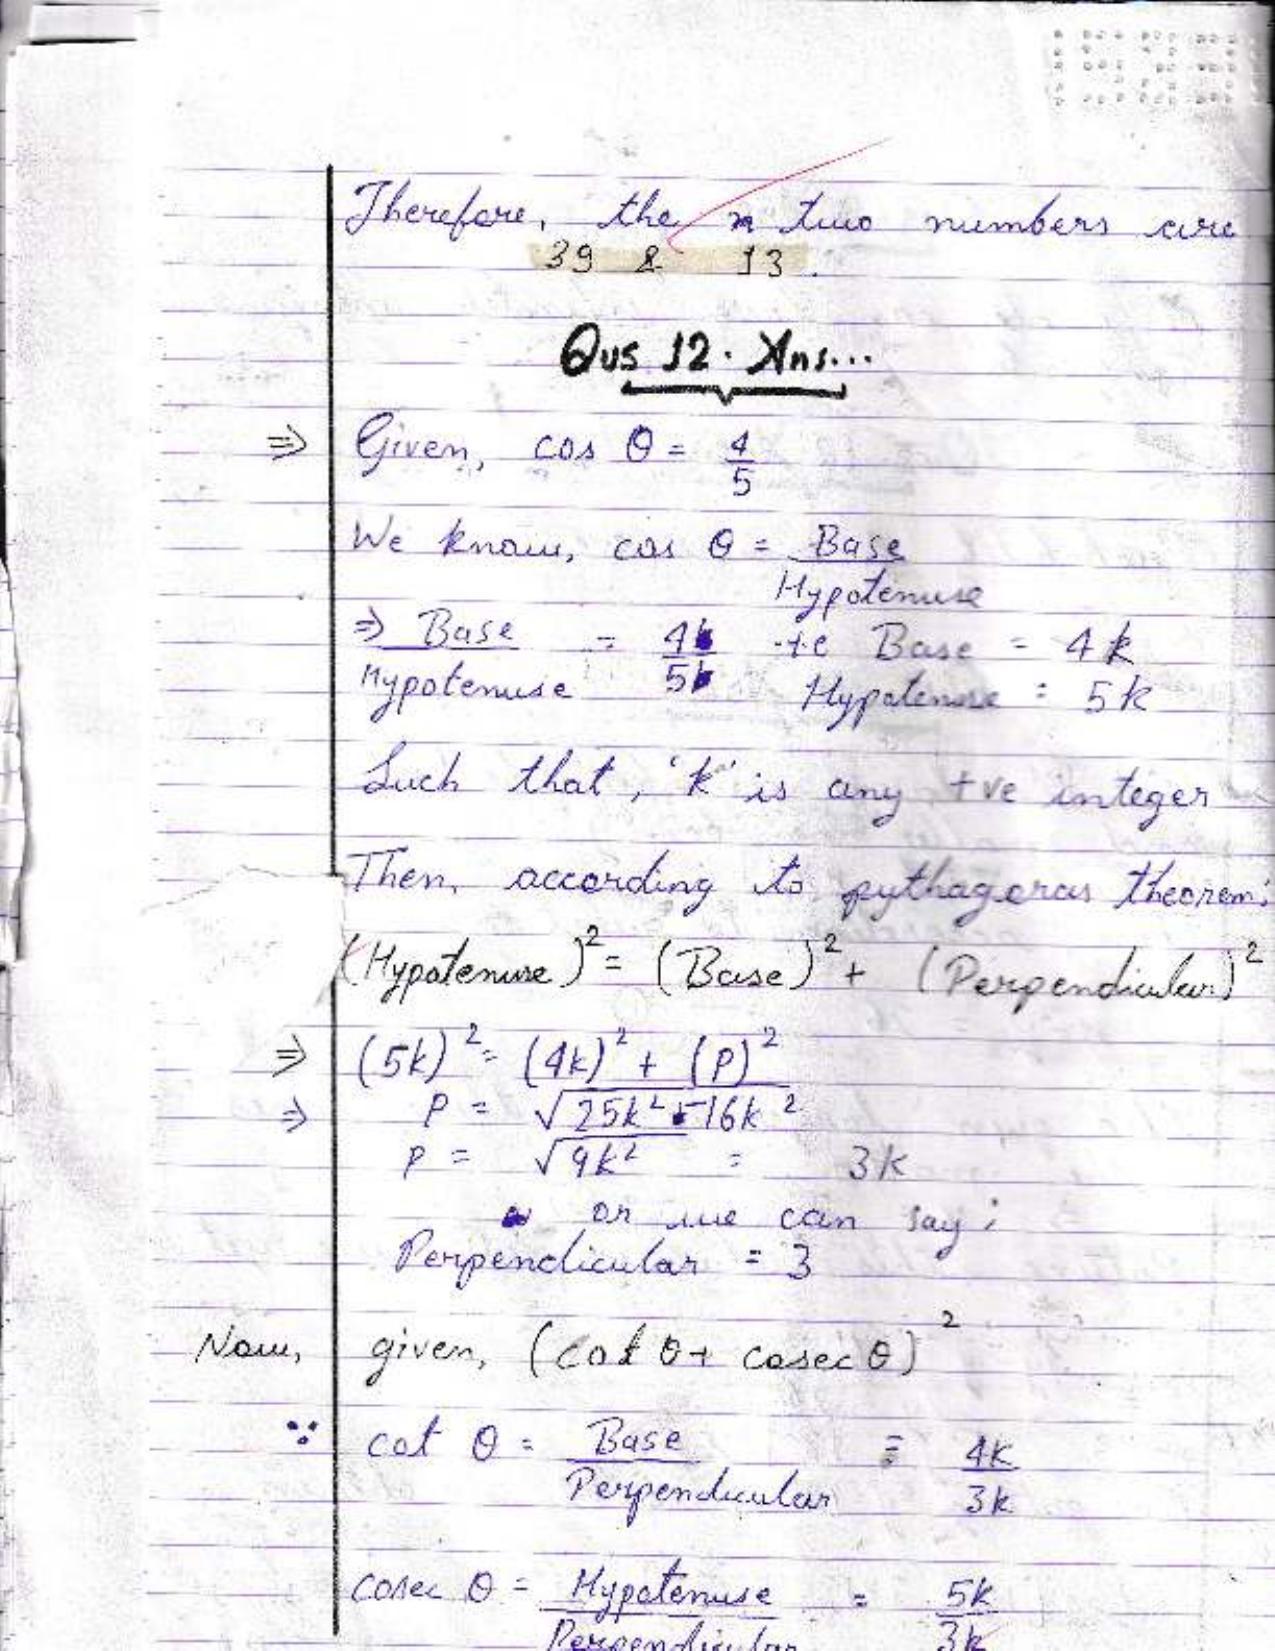 Therefore, the two numbers are
39 & 13.
Qus 12. Ans...
⇒ Given, cos θ = 4/5
We know, cos θ = Base/Hypotenuse
⇒ Base/Hypotenuse = 4k/5k Base = 4k
Hypotenuse = 5k
Such that, 'k' is any +ve integer
Then, according to pythagoras theorem;
(Hypotenuse)² = (Base)² + (Perpendicular)²
⇒ (5k)² = (4k)² + (P)²
⇒ P = √25k² - 16k²
P = √9k² = 3k
or we can say;
Perpendicular = 3
Now, given, (cot θ + cosec θ)²
∵ cot θ = Base/Perpendicular = 4k/3k
cosec θ = Hypotenuse/Perpendicular = 5k/3k